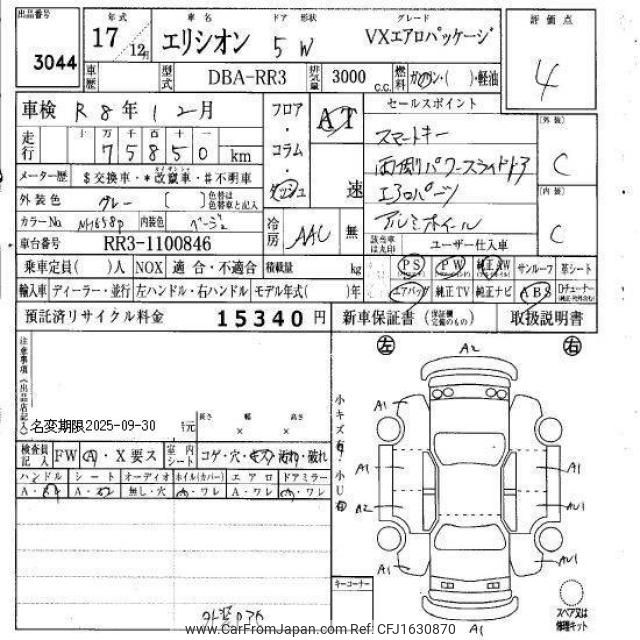 出品番号 年式 車名 ドア 形状 グレード 評価点
3044 17 12月 エリシオン 5 W VXエアロパッケージ 4
車歴 型式 DBA-RR3 排気量 3000 c.c. 燃料 ガソリン・( )・軽油
車検 R8年12月 フロア・コラム・ダッシュ AT 速 セールスポイント
走行 十 万 千 百 十 一
75850 km
スマートキー
両側パワースライドドア
エアロパーツ
アルミホイール
(外装) C
(内装) C
メーター歴 $交換車・*改竄車・#不明車
外装色 グレー [ ] 色替は色替車と記入
カラーNo NH658p 内装色 ベージュ 冷房 AAC 無
該当車は丸印 ユーザー仕入車
車台番号 RR3-1100846
乗車定員( )人 NOX 適合・不適合 積載量 kg PS PW 純正AW サンルーフ 革シート
輸入車 ディーラー・並行 左ハンドル・右ハンドル モデル年式( )年 エアバッグ 純正TV 純正ナビ ABS
預託済リサイクル料金 15340円 新車保証書 取扱説明書
注意事項(出品店記入)
左 A2 右
小キズ有 小U有
名変期限2025-09-30
長さ 幅 高さ
× ×
検査員記入 FW A・X要ス 室内シート コゲ・穴・キズ・汚れ・破れ
ハンドル シート オーディオ ホイル(カバー) エアロ ドアミラー
無し・穴 A・ワレ A・ワレ A・ワレ
A1
A1 A1
A2 AU1
A1 AU1
A1
キーコーナー
スペア又は修理キット
www.CarFromJapan.com Ref: CFJ1630870